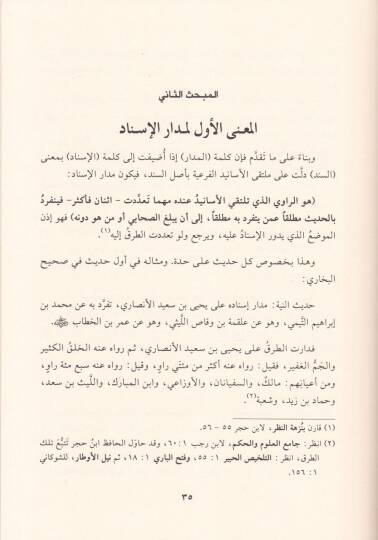 المبحث الثاني
المعنى الأول لمدار الإسناد
وبناءً على ما تقدَّم فإن كلمة (المدار) إذا أُضيفت إلى كلمة (الإسناد) بمعنى
(السند) دلَّت على ملتقى الأسانيد الفرعية بأصل السند، فيكون مدار الإسناد:
(هو الراوي الذي تلتقي الأسانيدُ عنده مهما تعدَّدت - اثنان فأكثر - فينفردُ
بالحديث مطلقاً عمن يتفرد به مطلقاً، إلى أن يبلغ الصحابي أو من هو دونه) فهو إذن
الموضعُ الذي يدور الإسنادُ عليه، ويرجع ولو تعددت الطرقُ إليه(١).
وهذا بخصوص كل حديث على حدة. ومثاله في أول حديث في صحيح
البخاري:
حديث النية: مدار إسناده على يحيى بن سعيد الأنصاري، تفرَّد به عن محمد بن
إبراهيم التَّيمي، وهو عن علقمة بن وقاص اللَّيثي، وهو عن عمر بن الخطاب ﷺ.
فدارت الطرقُ على يحيى بن سعيد الأنصاري، ثم رواه عنه الخلقُ الكثير
والجَمُّ الغفير، فقيل: رواه عنه أكثر من مئتي راوٍ، وقيل: رواه عنه سبع مئة راوٍ،
ومن أعيانِهم: مالكٌ، والسفيانان، والأوزاعي، وابن المبارك، واللَّيث بن سعد،
وحماد بن زيد، وشعبة(٢).
(١) قارن بنُزهة النظر، لابن حجر ٥٥ - ٥٦.
(٢) انظر: جامع العلوم والحكم، لابن رجب ١: ٦٠، وقد حاول الحافظ ابنُ حجر تَتَبُّعَ تلك
الطرق، انظر: التلخيص الحبير ١: ٥٥، وفتح الباري ١: ١٨، ثم نيل الأوطار، للشوكاني
١: ١٥٦.
٣٥